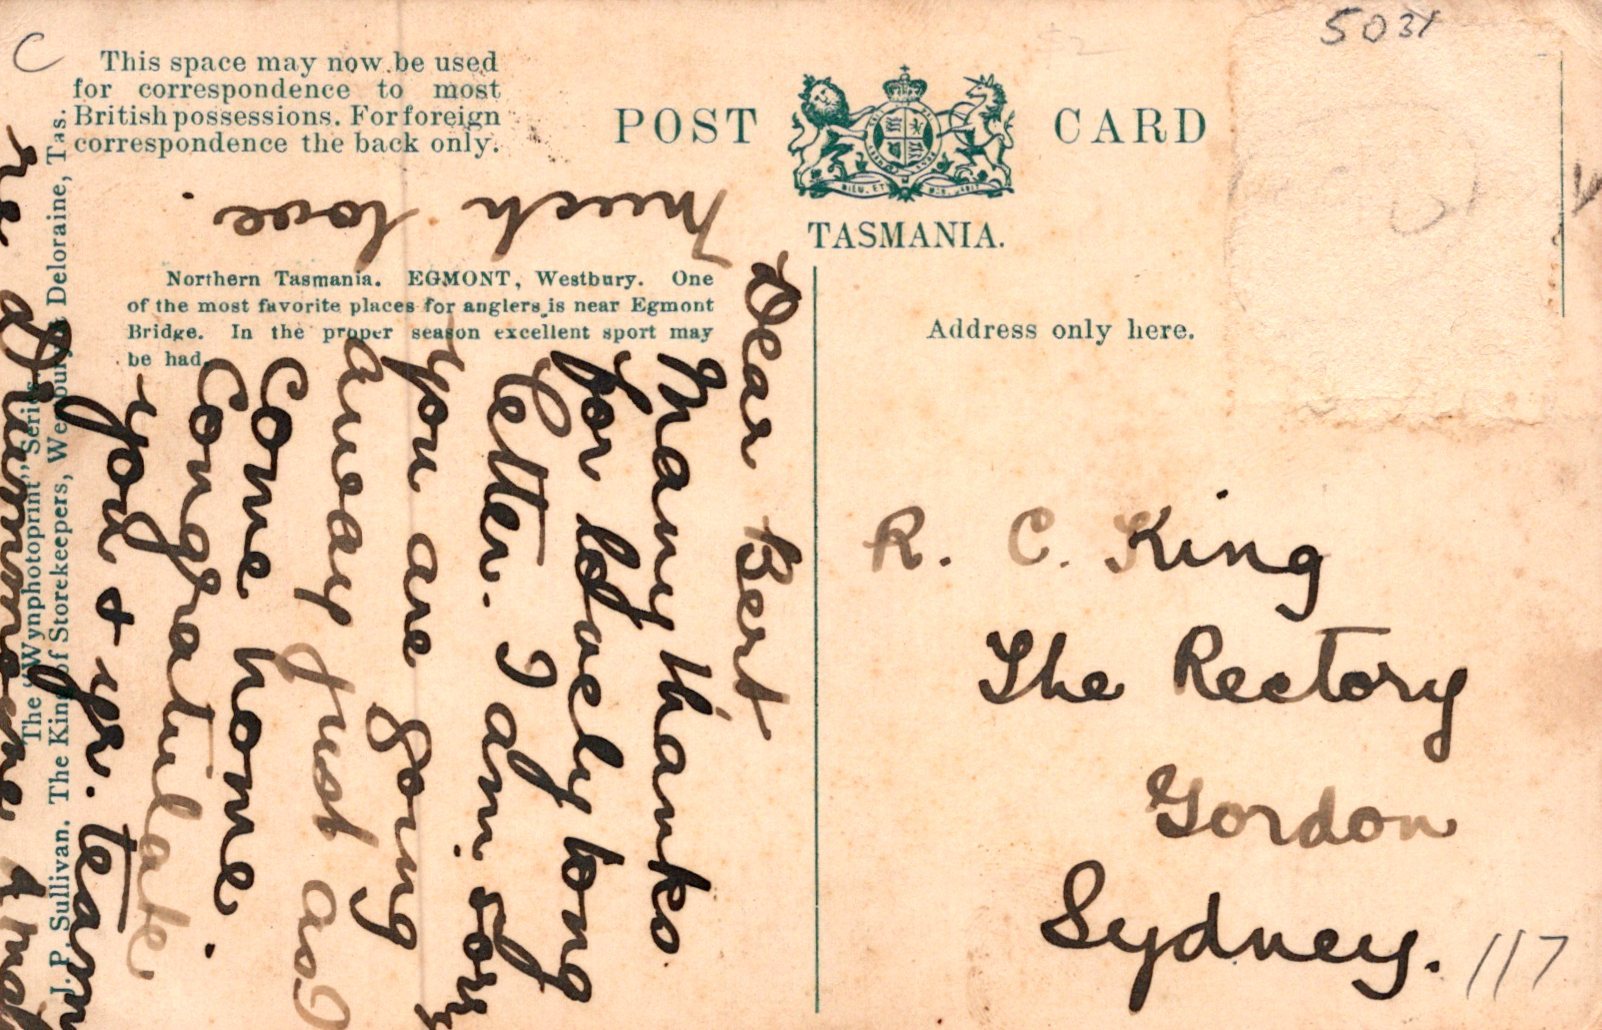 C
5031
This space may now be used
for correspondence to most
British possessions. For foreign
correspondence the back only.
POST CARD
TASMANIA.
Northern Tasmania. EGMONT, Westbury. One
of the most favorite places for anglers is near Egmont
Bridge. In the proper season excellent sport may
be had.
The "Wynphotoprint" Series
J. P. Sullivan. The King of Storekeepers, Westbury & Deloraine, Tas.
Address only here.
Dear Bert
Many thanks
for lovely long
letter. I am sorry
you are going
away just as I
come home.
Congratulate
you & yr. team
re Drummoyne
much love.
R. C. King
The Rectory
Gordon
Sydney.
117